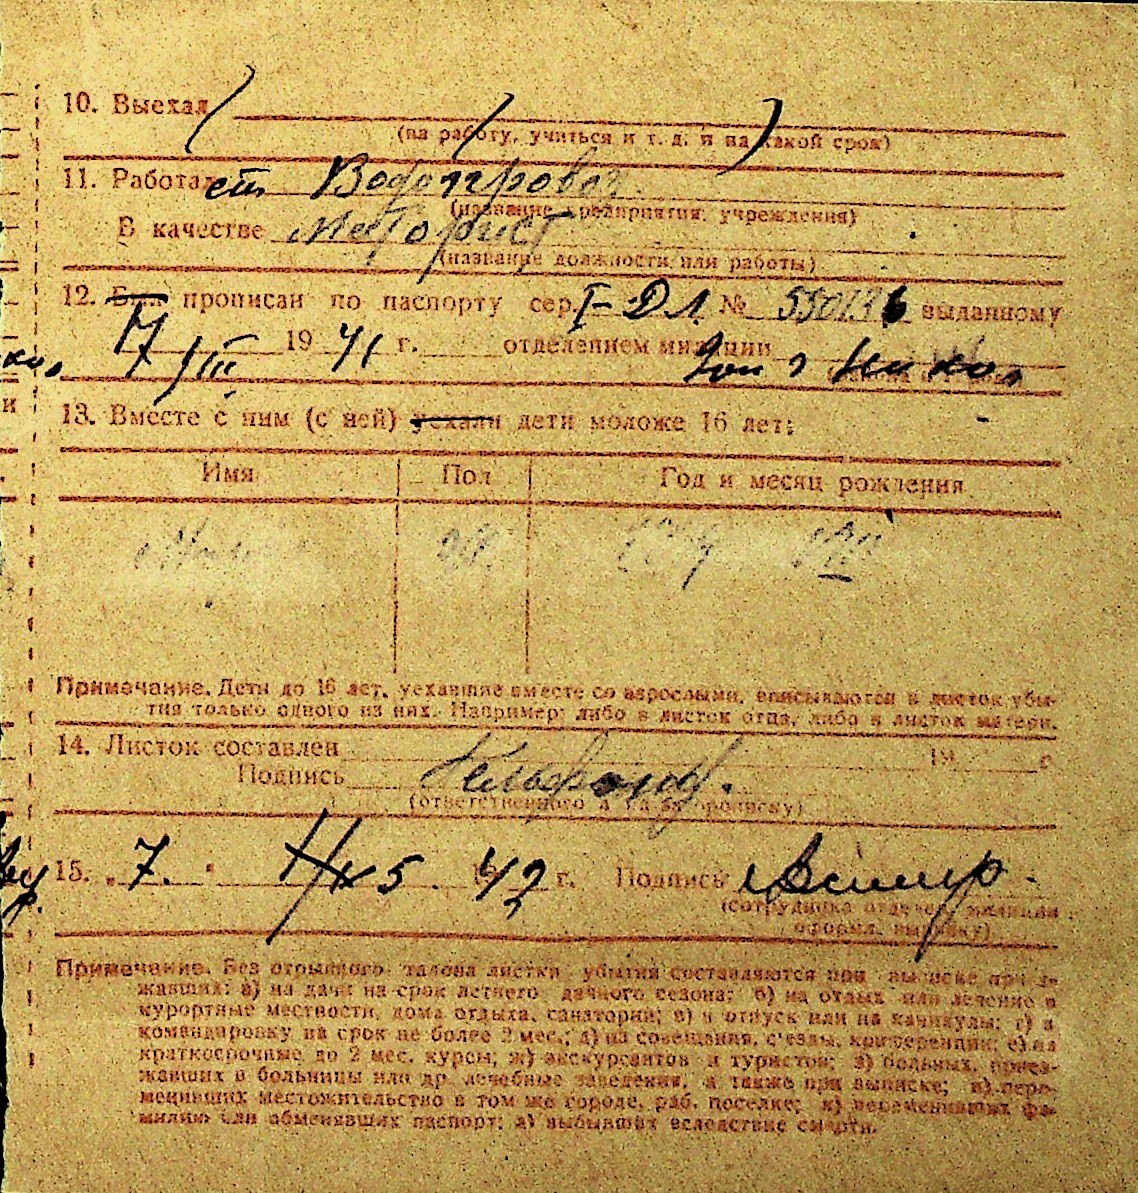 10. Выехал
(на работу, учиться и т. д. и на какой срок)
11. Работал ст. Водопровод
(название предприятия, учреждения)
В качестве моторист
(название должности или работы)
12. Был прописан по паспорту сер. I-ДЛ № выданному
17/III 1941 г. отделением милиции
13. Вместе с ним (с ней) уехали дети моложе 16 лет:
Имя Пол Год и месяц рождения
Примечание. Дети до 16 лет, уехавшие вместе со взрослыми, вписываются в листок убы-
тия только одного из них. Например: либо в листок отца, либо в листок матери.
14. Листок составлен 19 г.
Подпись
(ответственного за прописку)
15. „7." 1942 г. Подпись
(сотрудника отделен. милиции
оформл. выписку)
Примечание. Без отрывного талона листки убытия составляются при выписке приез-
жавших: а) на дачи на срок летнего дачного сезона; б) на отдых или лечение в
курортные местности, дома отдыха, санатории; в) в отпуск или на каникулы; г) в
командировку на срок не более 2 мес.; д) на совещания, съезды, конференции; е) на
краткосрочные до 2 мес. курсы; ж) экскурсантов и туристов; з) больных, приез-
жавших в больницы или др. лечебные заведения, а также при выписке; и) пере-
менивших местожительство в том же городе, раб. поселке; к) переменивших фа-
милию или обменявших паспорт; л) выбывших вследствие смерти.